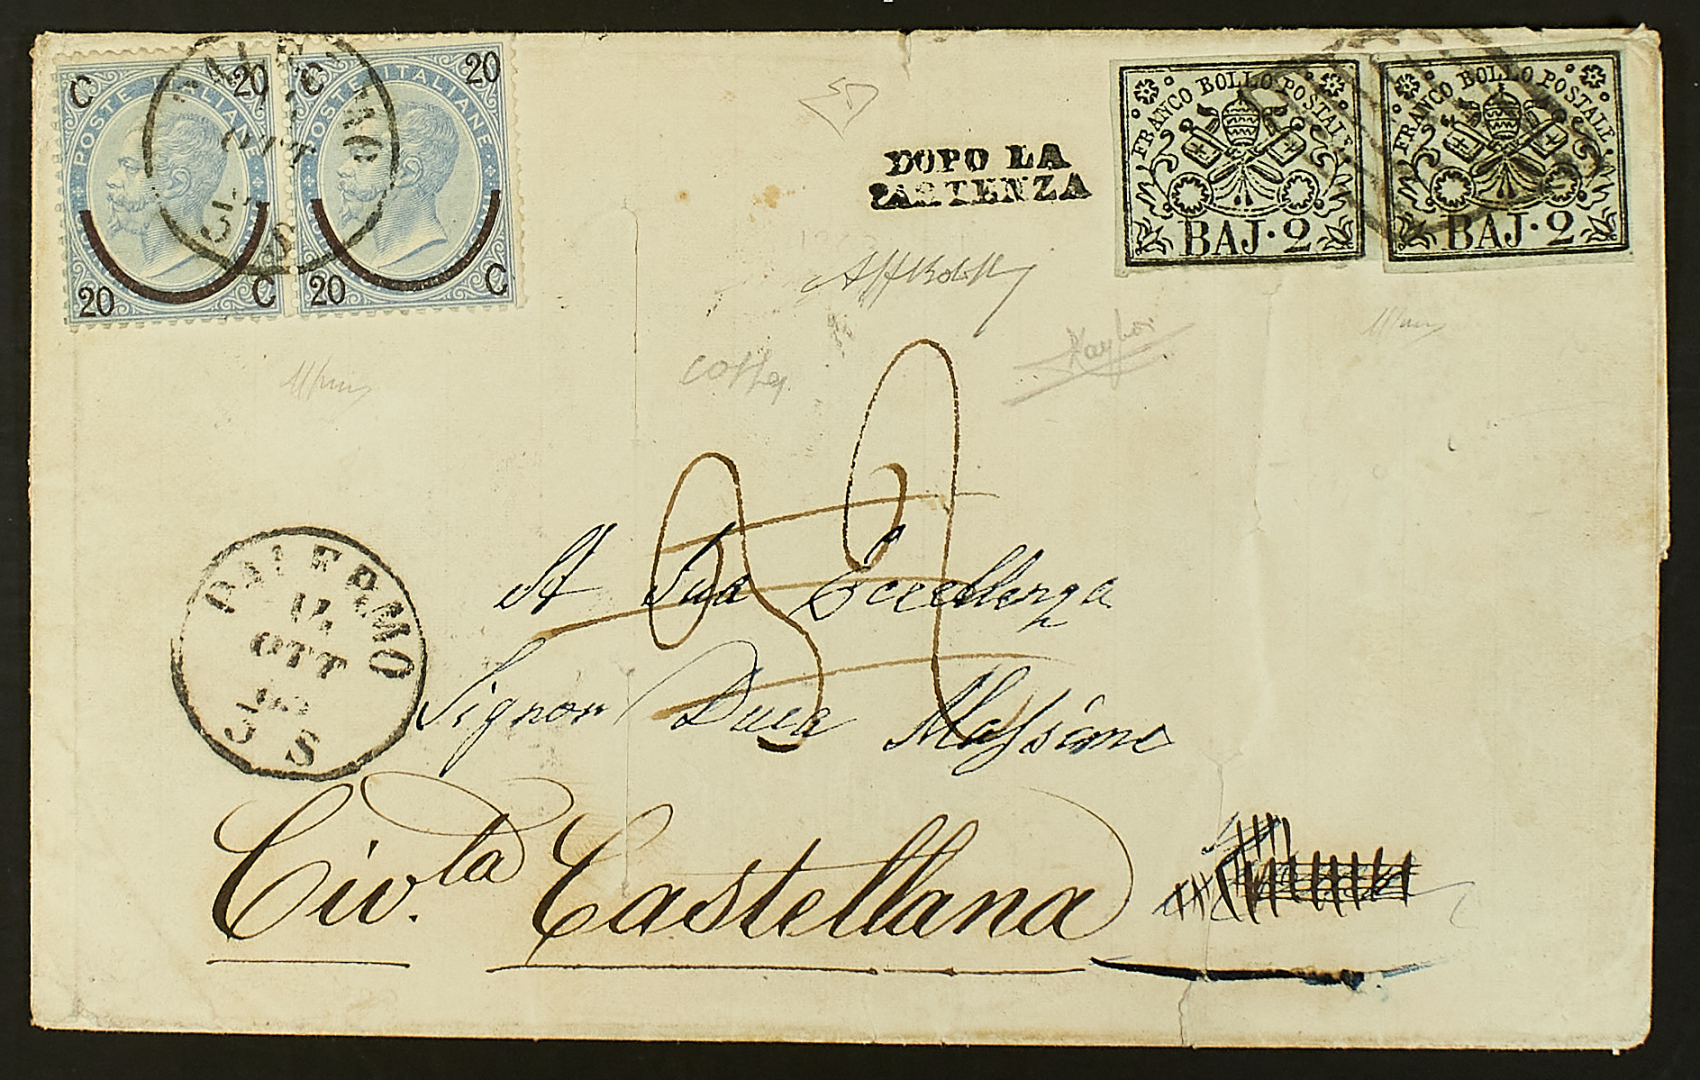 C 20
POSTE ITALIANE
20 C
C 20
POSTE ITALIANE
20 C
PALERMO
OTT
S
DOPO LA
PARTENZA
FRANCO BOLLO POSTALE
BAJ·2
FRANCO BOLLO POSTALE
BAJ·2
PALERMO
OTT
S
A Sua Eccellenza
Signor Duca Massimo
Civ.ta Castellana